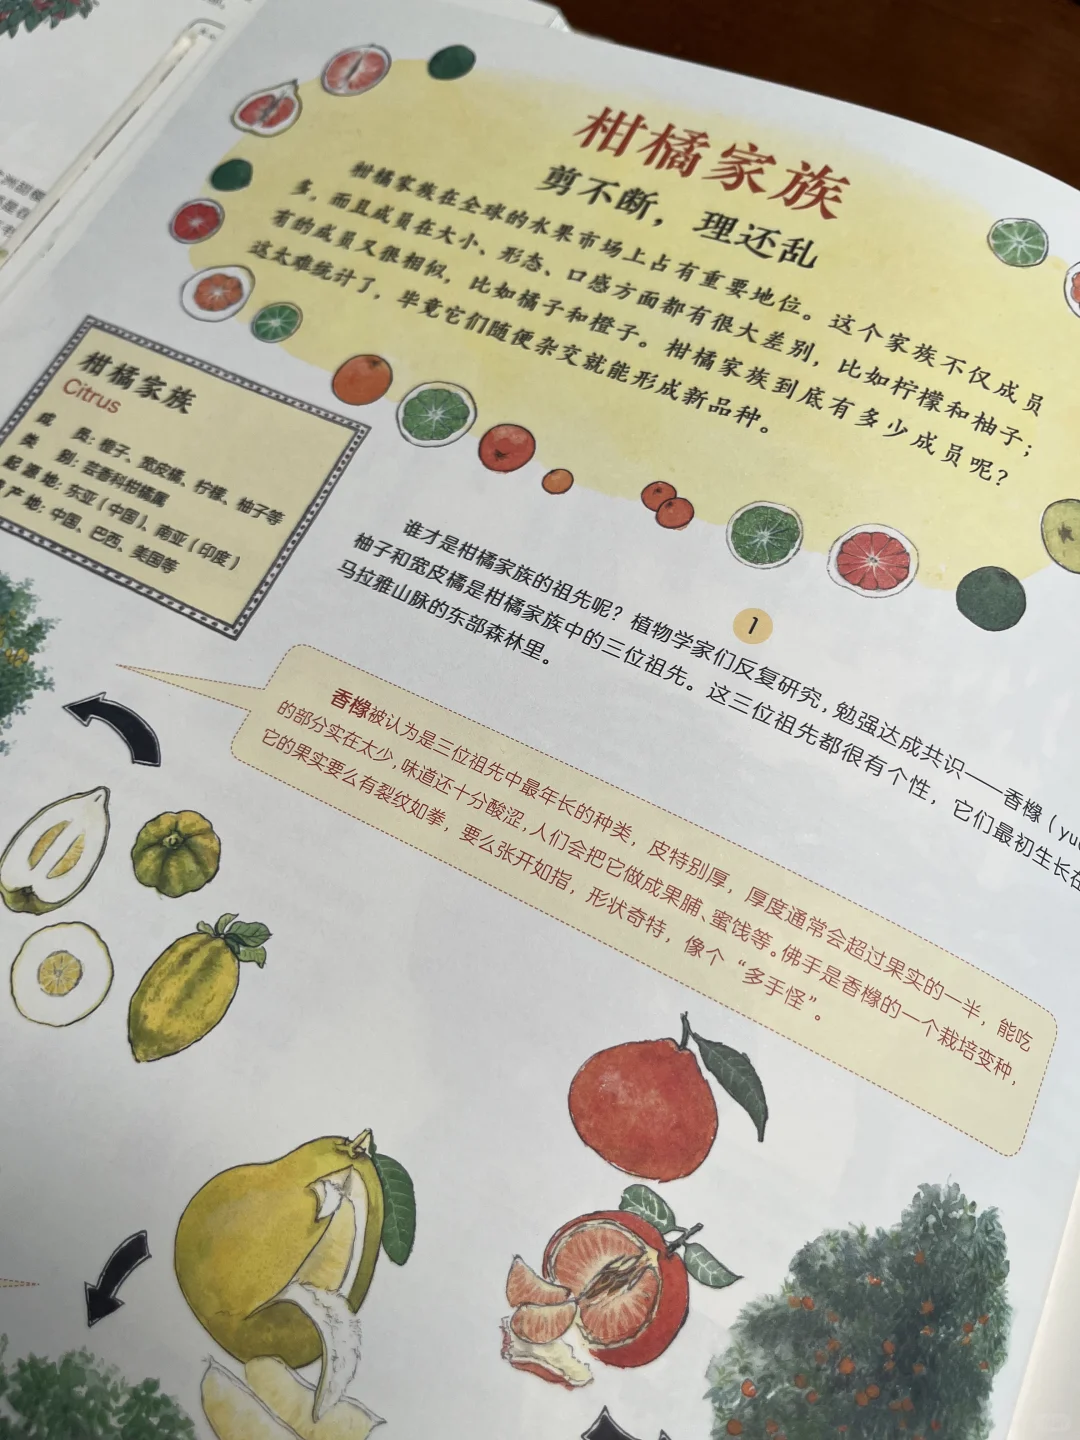 柑橘家族
剪不断，理还乱
柑橘家族在全球的水果市场上占有重要地位。这个家族不仅成员
多，而且成员在大小、形态、口感方面都有很大差别，比如柠檬和柚子；
有的成员又很相似，比如橘子和橙子。柑橘家族到底有多少成员呢？
这太难统计了，毕竟它们随便杂交就能形成新品种。
柑橘家族
Citrus
成员：橙子、宽皮橘、柠檬、柚子等
类别：芸香科柑橘属
起源地：东亚（中国）、南亚（印度）
产地：中国、巴西、美国等
1
谁才是柑橘家族的祖先呢？植物学家们反复研究，勉强达成共识——香橼（yu
柚子和宽皮橘是柑橘家族中的三位祖先。这三位祖先都很有个性，它们最初生长在
马拉雅山脉的东部森林里。
香橼被认为是三位祖先中最年长的种类，皮特别厚，厚度通常会超过果实的一半，能吃
的部分实在太少，味道还十分酸涩，人们会把它做成果脯、蜜饯等。佛手是香橼的一个栽培变种，
它的果实要么有裂纹如拳，要么张开如指，形状奇特，像个“多手怪”。